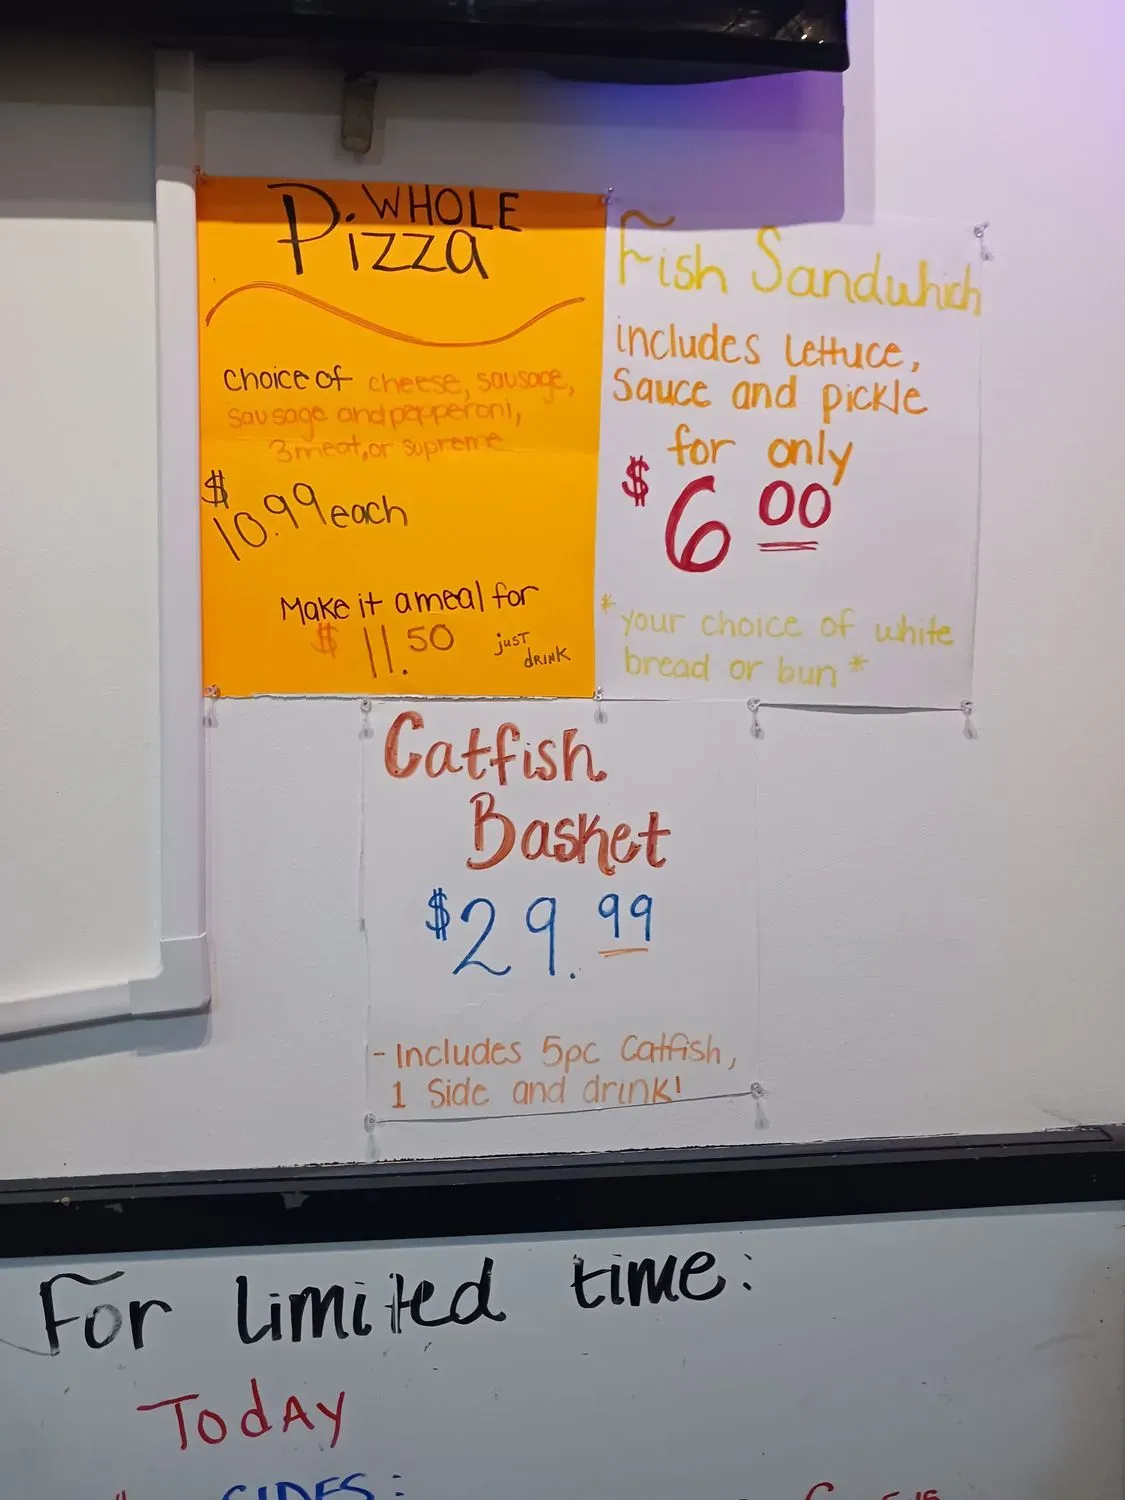 WHOLE
Pizza
choice of cheese, sausage,
sausage and pepperoni,
3 meat, or supreme
$10.99 each
Make it a meal for
$11.50 just
drink
Fish Sandwhich
includes lettuce,
Sauce and pickle
for only
$6.00
*your choice of white
bread or bun*
Catfish
Basket
$29.99
- Includes 5pc Catfish,
1 Side and drink!
For limited time:
Today
SIDES: